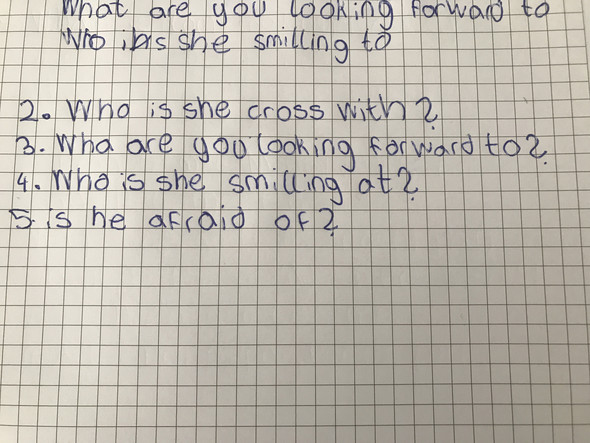 What are you looking forward to
Who is she smilling to
2. Who is she cross with?
3. Wha are you looking forward to?
4. Who is she smilling at?
5. is he afraid of?